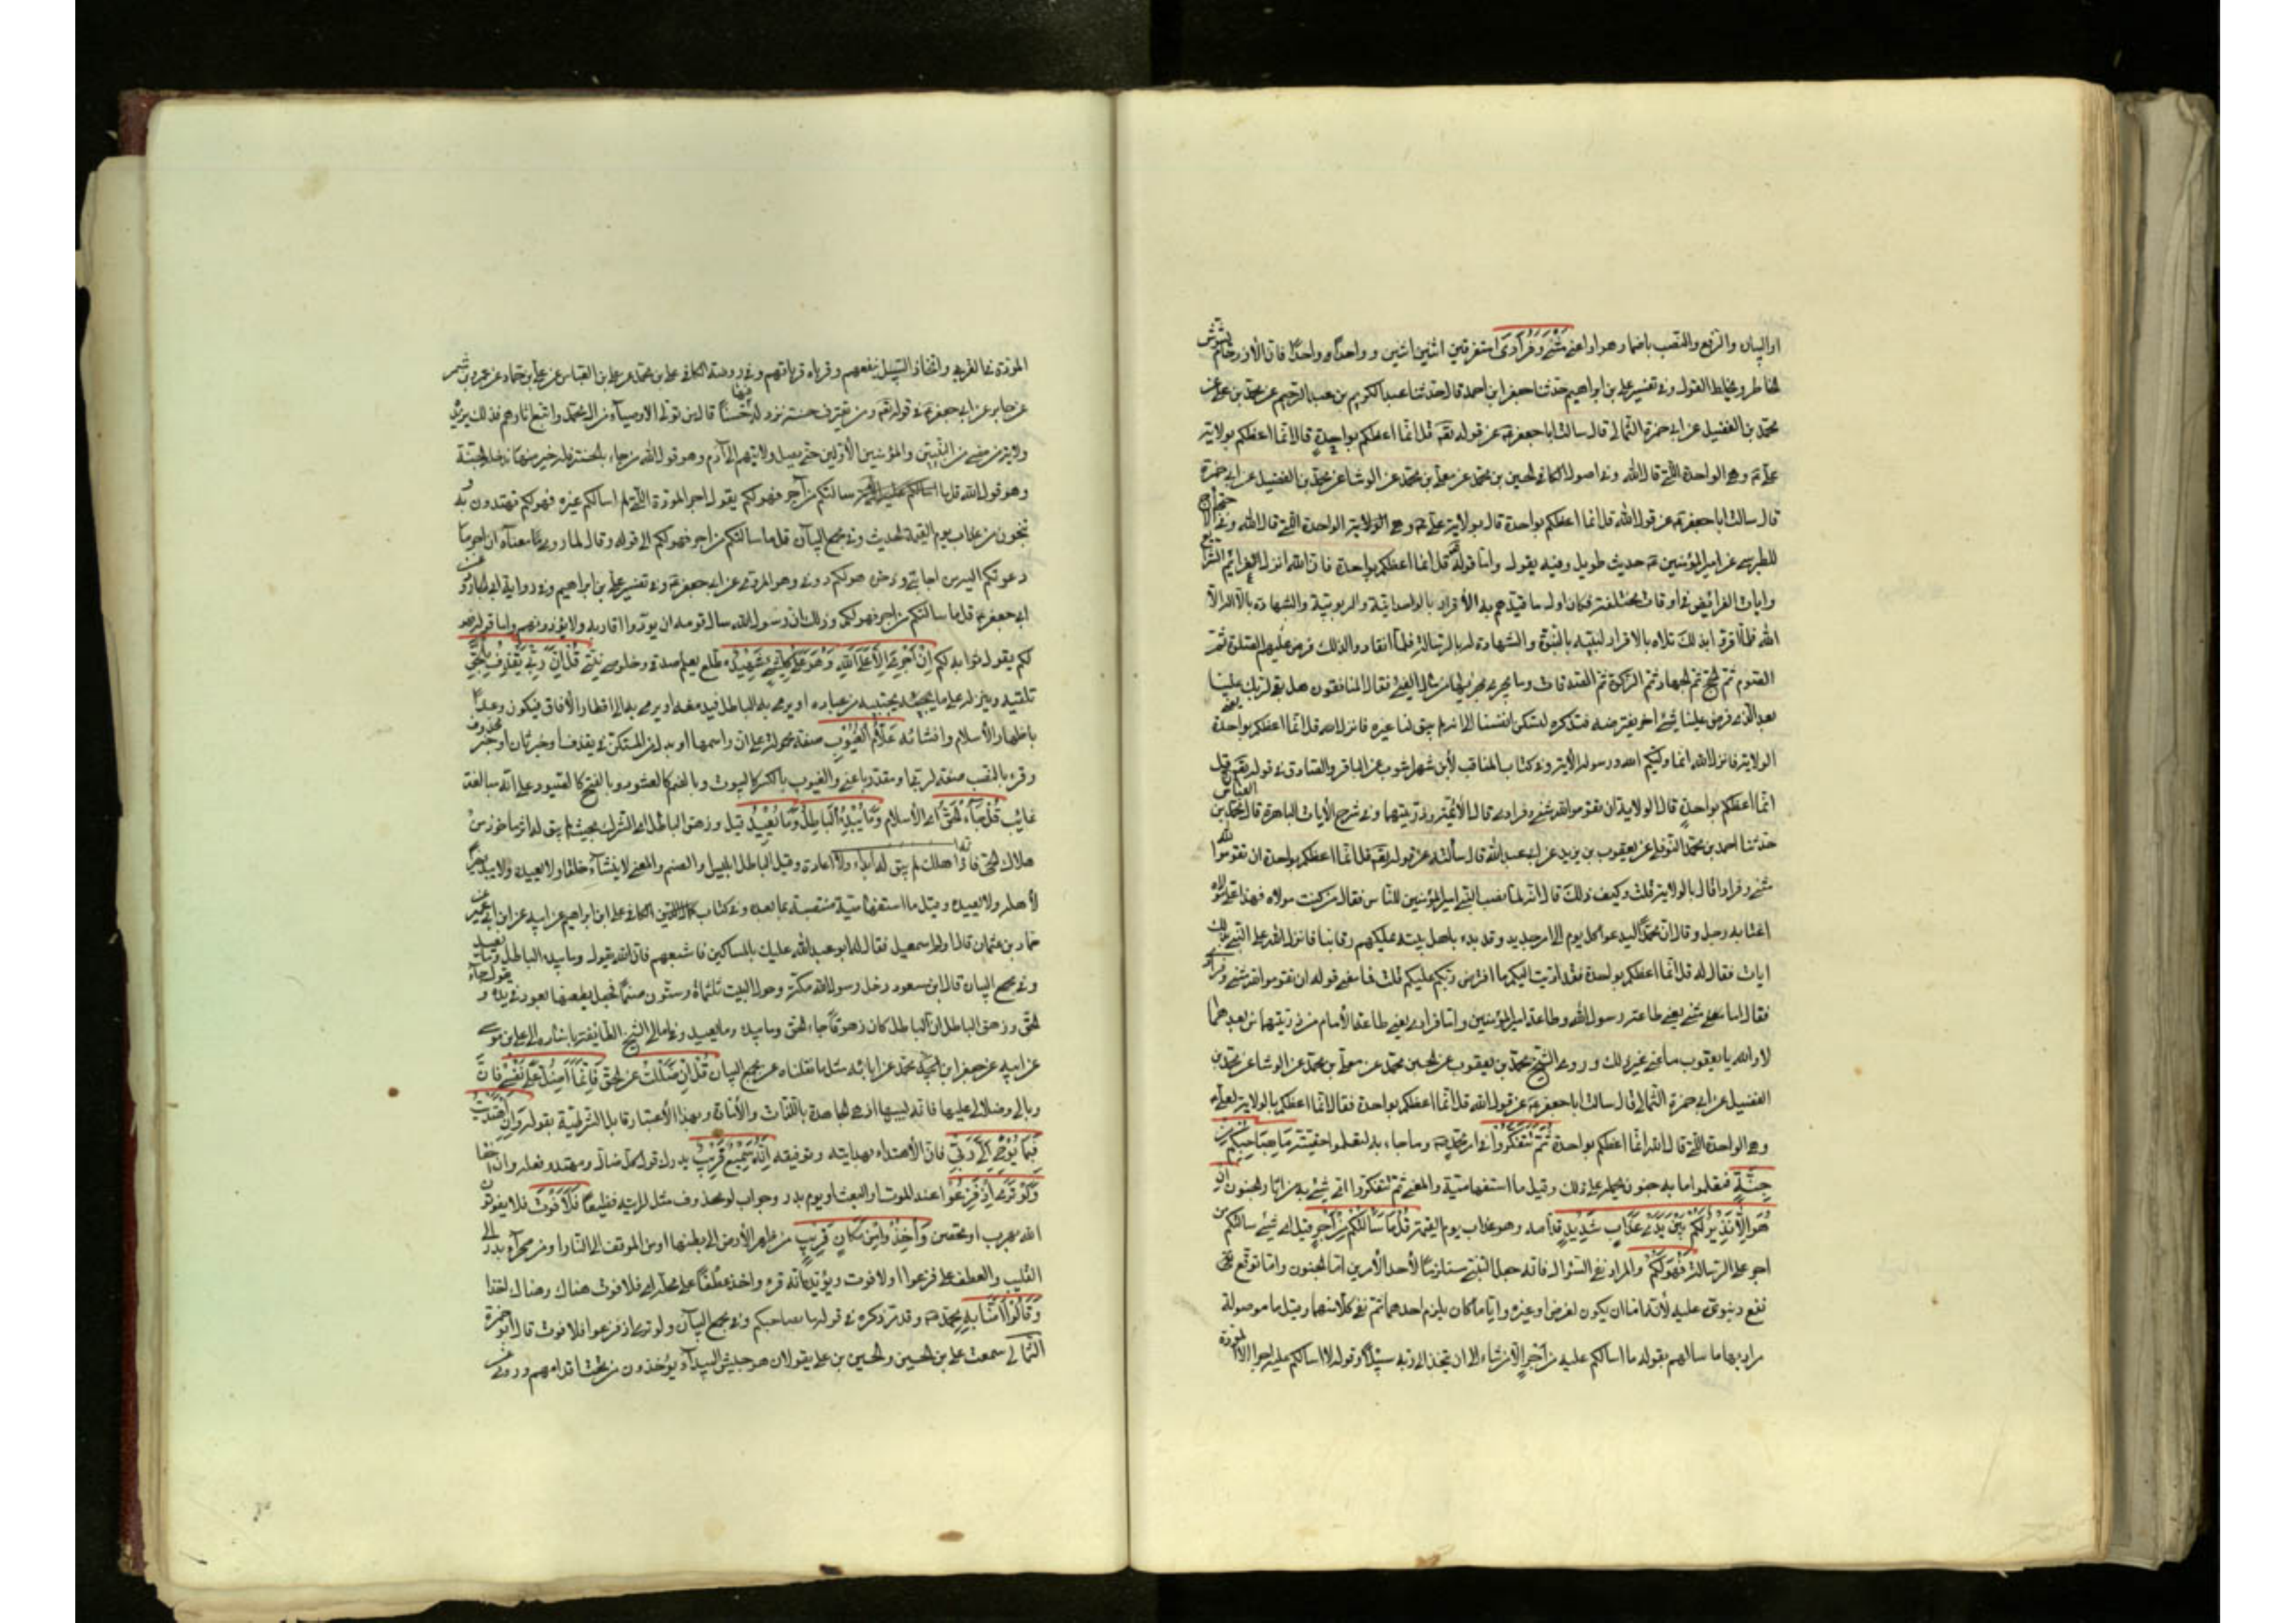 او البيان والرفع والنصب باضمار هو او اعنى مَثْنىٰ وَفُرٰادىٰ متفرقين اثنين اثنين وواحدا وواحدا فان الازدحام يشوش
الخاطر ويخلط القول وفى تفسير على بن ابراهيم حدثنا جعفر ابن احمد قال حدثنا عبد الكريم بن عبد الرحيم عن محمد بن على عن
محمد بن الفضيل عن ابى حمزة الثمالى قال سالت ابا جعفر عن قوله تعالى قل انما اعظكم بواحدة قال انما اعظكم بولاية
على وهى الواحدة التى قال الله وفى اصول الكافى الحسين بن محمد عن معلى بن محمد عن الوشا عن محمد بن الفضيل عن ابى حمزة
قال سالت ابا جعفر عن قول الله قل انما اعظكم بواحدة قال بولاية على هى الولاية الواحدة التى قال الله وفى الاحتجاج
للطبرسى عن امير المؤمنين حديث طويل وفيه يقول واما قوله قل انما اعظكم بواحدة فان الله انزل العزائم الشرايع
وايات الفرايض فى اوقات مختلفة فكان اول ما قيدهم به الاقرار بالوحدانية والربوبية والشهادة بان لا اله الا
الله فلما اقروا بذلك تلاه بالاقرار لنبيه بالنبوة والشهادة له بالرسالة فلما انقادوا لذلك فرض عليهم الصلوة ثم
الصوم ثم الحج ثم الجهاد ثم الزكوة ثم الصدقات وما يجرى مجراها من مال الفئ فقال المنافقون هل بقى لربك علينا
بعد الذى فرض علينا شئ اخر يفترضه فتذكره لتسكن انفسنا الى انه لم يبق لنا غيره فانزل الله قل انما اعظكم بواحدة يعنى
الولاية فانزل الله انما وليكم الله ورسوله الاية وفى كتاب المناقب لابن شهر اشوب عن الباقر والصادق فى قوله تعالى قل
انما اعظكم بواحدة قال الولاية ان تقوموا لله مثنى وفرادى قال الائمة من ذريتهما وفى شرح الايات الباهرة قال محمد بن العباس
حدثنا احمد بن محمد النوفلى عن يعقوب بن يزيد عن ابى عبد الله قال سألته عن قوله تعالى قل انما اعظكم بواحدة ان تقوموا لله
مثنى وفرادا قال بالولاية قلت وكيف ذلك قال انه لما نصب النبى امير المؤمنين للناس فقال من كنت مولاه فهذا على مولاه
اغتابه رجل وقال ان محمدا ليدعو كل يوم الى امر جديد وقد بدء باهل بيته يملكهم رقابنا فانزل الله على النبى بذلك
ايات فقال له قل انما اعظكم بواحدة فقد اديت اليكم ما افترض ربكم عليكم قلت فما معنى قوله ان تقوموا لله مثنى وفرادى
فقال اما مثنى يعنى طاعة رسول الله وطاعة امير المؤمنين واما فرادى يعنى طاعة الامام من ذريتهما من بعدهما
لا والله يا يعقوب ما عنى غير ذلك وروى الشيخ محمد بن يعقوب عن الحسين بن محمد عن معلى بن محمد عن الوشا عن محمد بن
الفضيل عن ابى حمزة الثمالى قال سالت ابا جعفر عن قول الله قل انما اعظكم بواحدة فقال انما اعظكم بالولاية لعلى
وهى الواحدة التى قال الله انما اعظكم بواحدة ثُمَّ تَتَفَكَّرُوا فى امر محمد وما جاء به لتعلموا حقيته مٰا بِصٰاحِبِكُمْ مِنْ
جِنَّةٍ فتعلموا ما به جنون يحمله على ذلك وقيل ما استفهامية والمعنى ثم تتفكروا اى شئ به من اثار الجنون اِنْ
هُوَ اِلّٰا نَذيرٌ لَكُمْ بَيْنَ يَدَىْ عَذٰابٍ شَديدٍ قدامه وهو عذاب يوم القيمة قُلْ مٰا سَأَلْتُكُمْ مِنْ اَجْرٍ قيل اى شئ سالتكم من
اجر على الرسالة فَهُوَ لَكُمْ والمراد نفى السؤال فانه جعل التنبى مستلزما لاحد الامرين اما الجنون واما توقع
نفع دنيوى عليه لانه اما ان يكون لغرض او غيره وايا ما كان يلزم احدهما ثم نفى كلا منهما وقيل ما موصولة
مراد بها ما سالهم بقوله ما اسالكم عليه من اجر الا من شاء ان يتخذ الى ربه سبيلا وقوله لا اسالكم عليه اجرا الا المودة
المودة فى القربى واتخاذ السبيل ينفعهم وقرباه قرباهم وفى روضة الكافى على بن محمد عن على بن العباس عن على بن حماد عن عمرو بن شمر
عن جابر عن ابى جعفر فى قوله تعالى ومن يقترف حسنة نزد له فيها حسنا قال من تولى الاوصياء من آل محمد واتبع اثارهم فذلك يزيده
ولاية من مضى من النبيين والمؤمنين الاولين حتى يصل ولايتهم الى آدم وهو قول الله من جاء بالحسنة فله خير منها يدخله الجنة
وهو قول الله قل ما سالتكم من اجر فهو لكم يقول اجر المودة التى لم اسالكم غيره فهو لكم تهتدون به و
تنجون من عذاب يوم القيمة الحديث وفى مجمع البيان قل ما سالتكم من اجر فهو لكم الى قوله وقال الماوردى معناه ان اجر ما
دعوتكم اليه من اجابتى وذخره هو لكم دونى وهو المروى عن ابى جعفر وفى تفسير على بن ابراهيم وفى رواية ابى الجارود عن
ابى جعفر قل ما سالتكم من اجر فهو لكم وذلك ان رسول الله سال قومه ان يودوا اقاربه ولا يؤذونهم واما قوله فهو
لكم يقول ثوابه لكم اِنْ اَجْرِىَ اِلّٰا عَلَى اللّٰهِ وَهُوَ عَلٰى كُلِّ شَىْءٍ شَهيدٌ مطلع يعلم صدقى وخلوص نيتى قُلْ اِنَّ رَبّى يَقْذِفُ بِالْحَقِّ
يلقيه وينزله على من يجتبيه من عباده او يرمى به الباطل فيدمغه او يرمى به الى اقطار الافاق فيكون وعدا
باظهار الاسلام وافشائه عَلّٰامُ الْغُيُوبِ صفة محمولة على ان واسمها او بدل من المستكن فى يقذف او خبر ثان او خبر محذوف
وقرء بالنصب صفة لربى او مقدرا باعنى والغيوب بالكسر كالبيوت وبالضم كالعشور وبالفتح كالصبور على انه مبالغة
غايب قُلْ جٰاءَ الْحَقُّ اى الاسلام وَمٰا يُبْدِئُ الْبٰاطِلُ وَمٰا يُعيدُ قيل وزهق الباطل اى الشرك بحيث لم يبق له اثر ماخوذ من
هلاك الحى فانه اذا هلك لم يبق له ابداء ولا اعادة وقيل الباطل ابليس او الصنم والمعنى لا ينشئ خلقا ولا يعيده ولا يبدئ خيرا
لاهله ولا يعيده وقيل ما استفهامية منتصبة بما بعده وفى كتاب الكافى على ابن ابراهيم عن ابيه عن ابن ابى عمير عن
حماد بن عثمان قال اولم اسمعيل فقال له ابو عبد الله عليك بالمساكين فاشبعهم فان الله يقول وما يبدئ الباطل وما يعيد
وفى مجمع البيان قال ابن مسعود دخل رسول الله مكة وحول البيت ثلثماة وستون صنما فجعل يطعنها بعود فى يده و يقول جاء
الحق وزهق الباطل ان الباطل كان زهوقا جاء الحق وما يبدئ وما يعيد وفى امالى الشيخ الطايفة باسناده الى على بن موسى
عن ابيه عن جعفر ابن محمد عن ابائه مثل ما نقلناه عن مجمع البيان قُلْ اِنْ ضَلَلْتُ عن الحق فَاِنَّمٰا اَضِلُّ عَلٰى نَفْسى فان
وبال ضلالى عليها فانه بسببها اذ هى الجاهلة بالذات والامارة وبهذا الاعتبار قابل الشرطية بقوله وَاِنِ اهْتَدَيْتُ
فَبِمٰا يُوحى اِلَىَّ رَبّى فان الاهتداء بهدايته وتوفيقه اِنَّهُ سَميعٌ قَريبٌ يدرك قول كل ضال ومهتد وفعله وان اخفا
وَلَوْ تَرٰى اِذْ فَزِعُوا عند الموت او البعث او يوم بدر وجواب لو محذوف مثل لرايت فظيعا فَلٰا فَوْتَ فلا يفوتون
الله بهرب او تحصن وَاُخِذُوا مِنْ مَكٰانٍ قَريبٍ من ظهر الارض الى بطنها او من الموقف الى النار او من صحراء بدر الى
القليب والعطف على فزعوا او لا فوت ويؤيده انه قرء واخذ عطفا على محله اى فلا فوت هناك وهناك اخذا
وَقٰالُوا اٰمَنّٰا بِهِ بمحمد وقد مر ذكره فى قوله ما بصاحبكم وفى مجمع البيان ولو ترى اذ فزعوا فلا فوت قال ابو حمزة
الثمالى سمعت على بن الحسين والحسين بن على يقولان هو جيش البيداء يؤخذون من تحت اقدامهم وروى عن